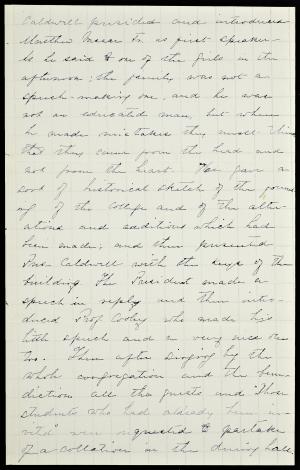 Caldwell presided and introduced
Matthew Vassar Jr. as first speaker.
As he said to one of the girls in the
afternoon: the family was not a
speech-making one, and he was
not an educated man, but when
he made mistakes they must think
that they came from the head and
not from the heart. He gave a
sort of historical sketch of the found
ing of the College and of the alter
ations and additions which had
been made; and then presented
Pres. Caldwell with the keys of the
building. The President made a
speech in reply and then intro-
duced Prof. Cooley who made his
little speech and a very nice one
too. Then after singing by the
whole congregation and the bene
diction all the guests and "those
students who had already been in-
vited" were requested to partake
of a collation in the dining hall.